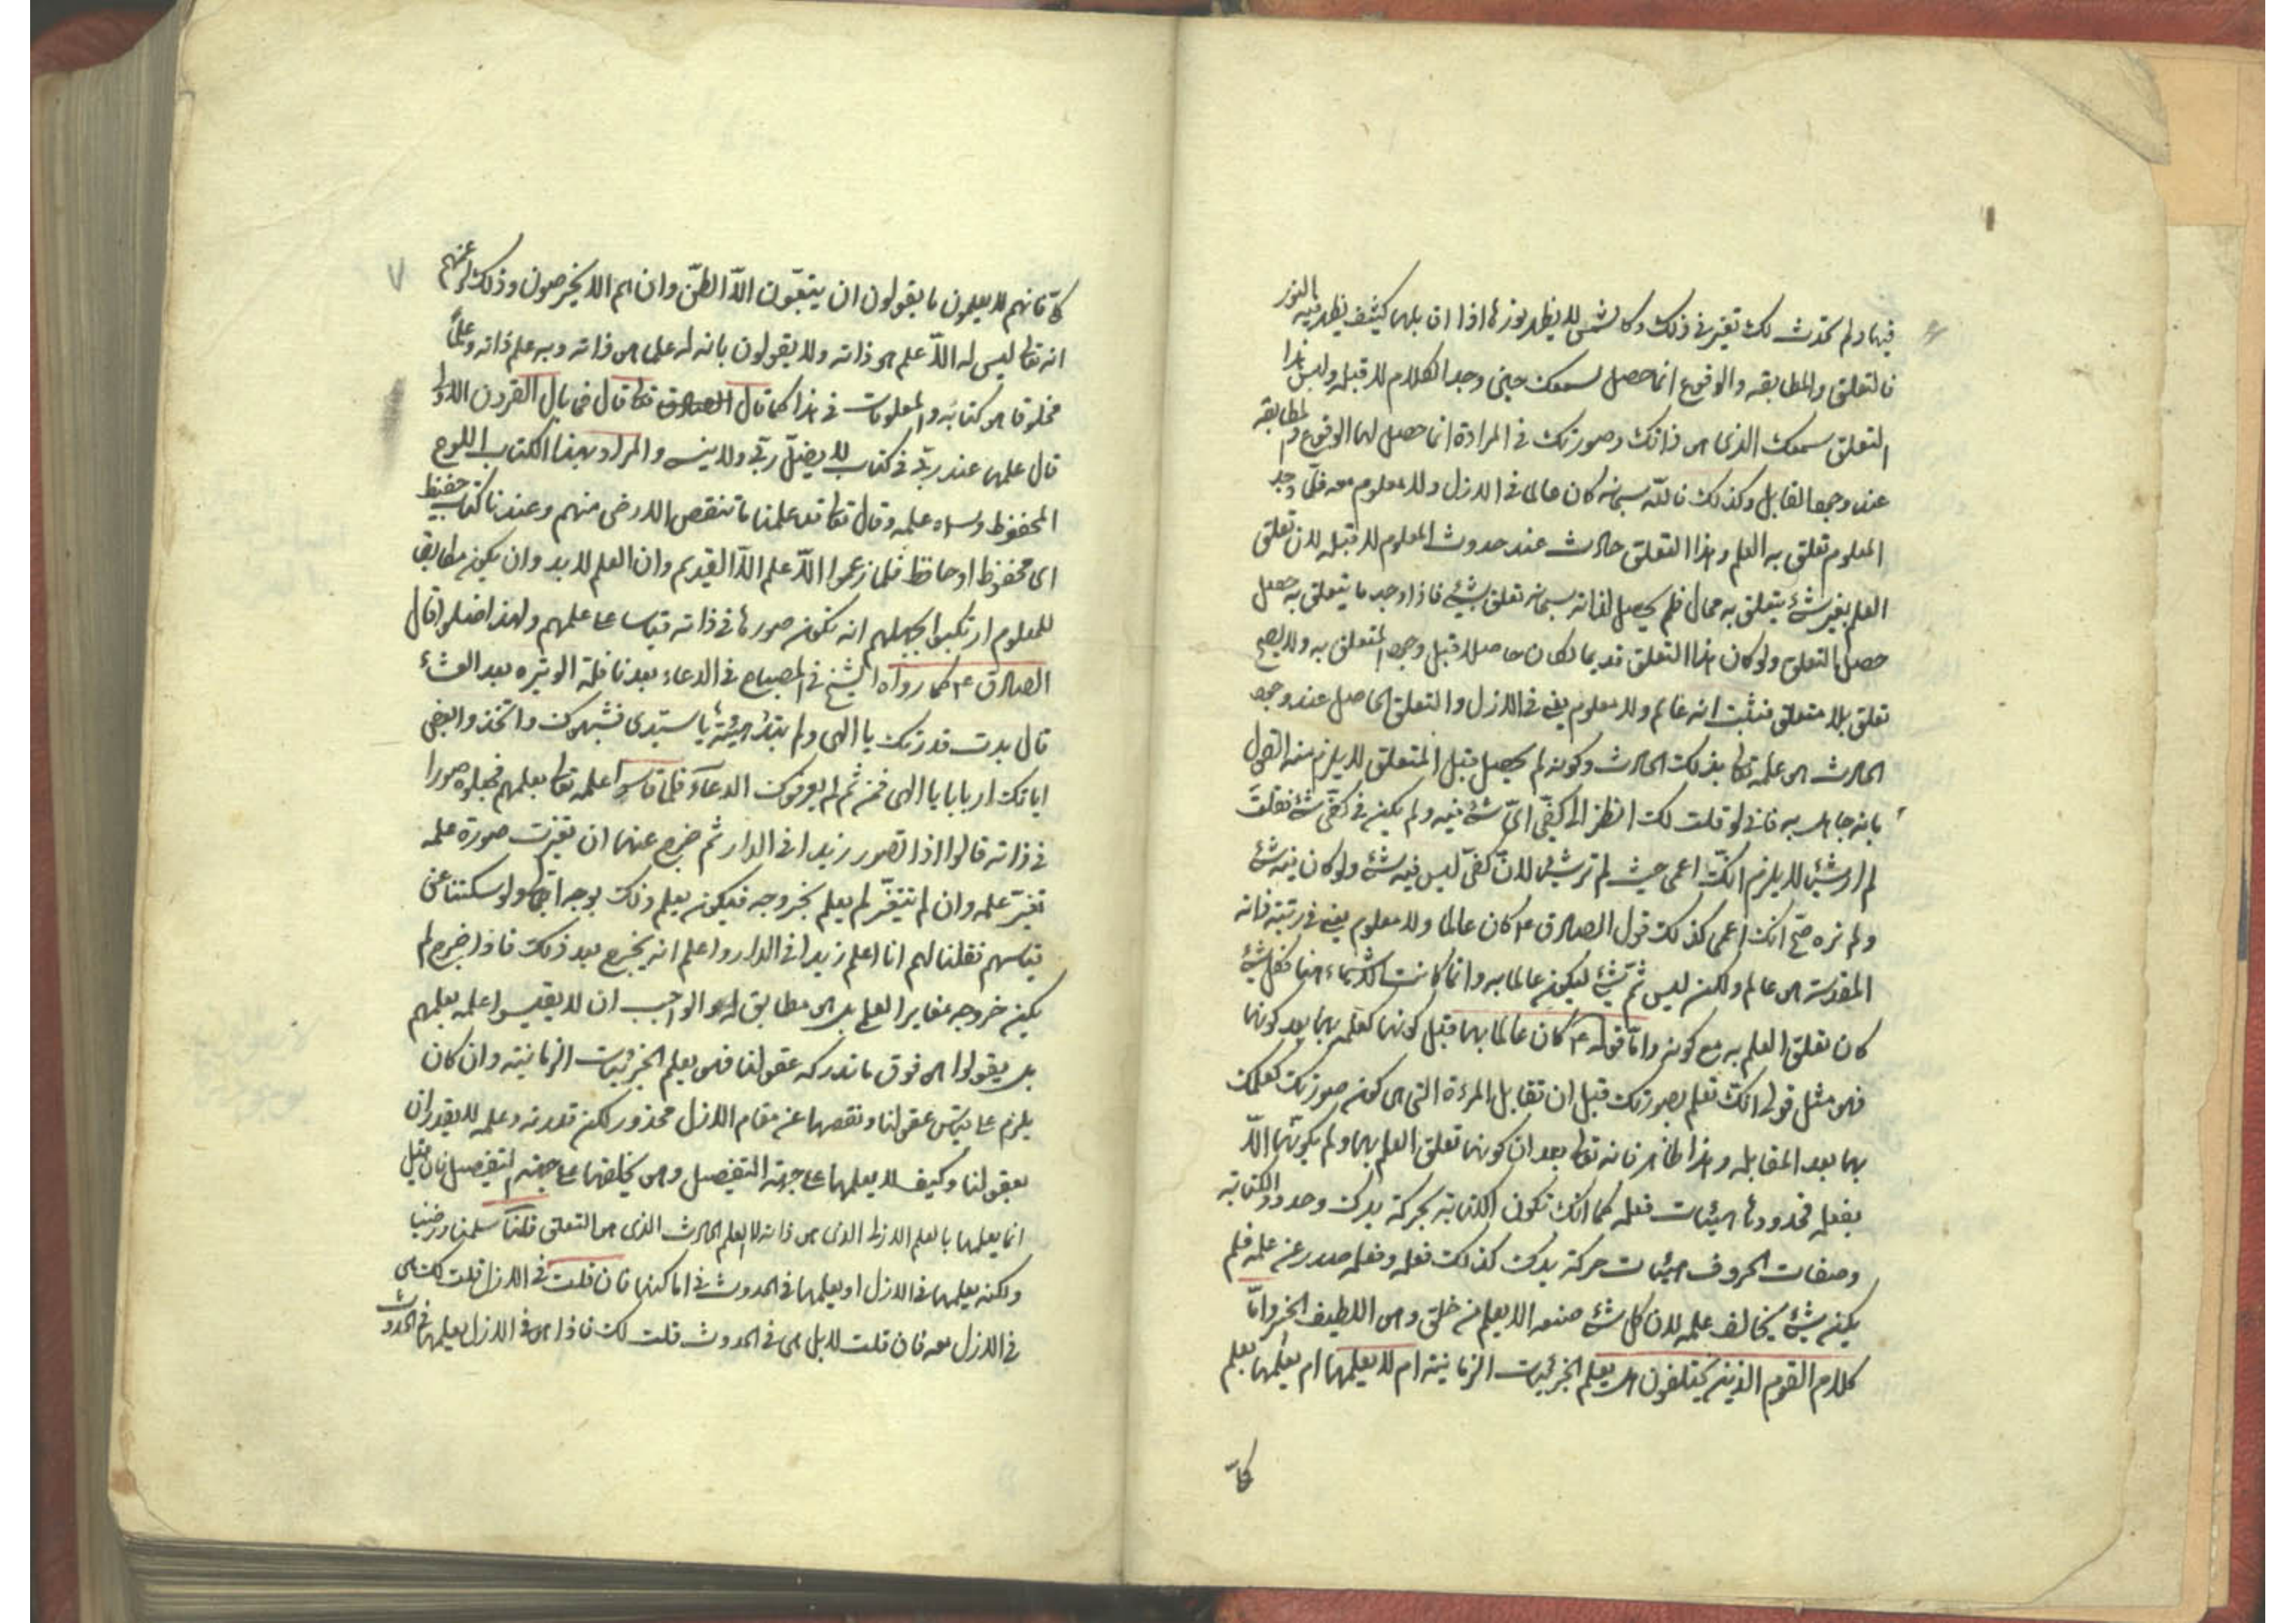 فيها ولم تحدث لك تغير في ذلك وكالشمس لا يظهر نورها اذا قابلها كثيف يظهر فيه النور
فالتعلق والمطابقة والوقوع انما حصل لسمعك حين وجد الكلام لا قبله وليس هذا
التعلق سمعك الذي هو ذاتك وصورتك في المرآة انما حصل لها الوقوع والمطابقة
عند وجود المقابل وكذلك فالله سبحانه كان عالما في الازل ولا معلوم معه فلما وجد
المعلوم تعلق به العلم وهذا التعلق حادث عند حدوث المعلوم لا قبله لان تعلق
العلم بغير شئ يتعلق به محال فلم يحصل لذاته سبحانه تعلق بشئ فاذا وجد ما يتعلق به حصل
حصل التعلق ولو كان هذا التعلق قديما لكان حاصلا قبل وجود المتعلق به ولا يصح
تعلق بلا متعلق فثبت انه عالم ولا معلوم يعني في الازل والتعلق الحاصل عند وجود
الحادث هو علمه تعالى بذلك الحادث وكونه لم يحصل قبل المتعلق لا يلزم منه القول
بانه جاهل به فاني لو قلت لك انظر الى كفي اي شئ فيه ولم يكن في كفي شئ فقلت
لم ار شيئا لا يلزم انك اعمى حيث لم تر شيئا لان كفي ليس فيه شئ ولو كان فيه شئ
ولم تره صح انك اعمى كذلك قول الصادق ع كان عالما ولا معلوم يعني في رتبة ذاته
المقدسة هو عالم ولكن ليس ثم شئ ليكون عالما به وانما كانت الاشياء فكل شئ
كان تعلق العلم به مع كونه واما قوله ع كان عالما بها قبل كونها كعلمه بها بعد كونها
فهو مثل قولي انك تعلم بصورتك قبل ان تقابل المرءة التي هي كون صورتك كعلمك
بها بعد المقابلة وهذا ظاهر فانه تعالى بعد ان كونها تعلق العلم بها ولم يكونها الا
بفعله فحدودها هيئات فعله كما انك تكون الكتابة بحركة يدك وحدود الكتابة
وصفات الحروف هيئات حركة يدك كذلك فعله وفعله صدر عن علمه فلم
يكن شئ يخالف علمه لان كل شئ صنعه الا يعلم من خلق وهو اللطيف الخبير واما
كلام القوم الذين يختلفون هل يعلم الجزئيات الزمانية ام لا يعلمها ام يعلمها بعلم
كلي
٧
كلي فانهم لا يعلمون ما يقولون ان يتبعون الا الظن وان هم الا يخرصون وذلك لزعمهم
انه تعالى ليس له الا علم هو ذاته ولا يقولون بانه له علما هو ذاته وبه علم ذاته وعلما
مخلوقا هو كتابه والمعلومات في هذا كما قال الصادق تعالى قال فما بال القرون الاولى
قال علمها عند ربي في كتاب لا يضل ربي ولا ينسى والمراد بهذا الكتاب اللوح
المحفوظ وسماه علمه وقال تعالى قد علمنا ما تنقص الارض منهم وعندنا كتاب حفيظ
اي محفوظ او حافظ فلما زعموا الا علم الا القديم وان العلم لا بد وان يكون مطابقا
للمعلوم ارتكبوا بجهلهم انه تكون صورها في ذاته قياسا على علمهم ولهذا ضلوا قال
الصادق ع كما رواه الشيخ في المصباح في الدعاء بعد نافلة الوتيرة بعد العشاء
قال بدت قدرتك يا الهي ولم تبد هيئة يا سيدي فشبهوك واتخذوا بعض
اياتك اربابا يا الهي فمن ثم لم يعرفوك الدعاء فلما قاسوا علمه تعالى بعلمهم فجعلوه صورا
في ذاته قالوا اذا تصور زيدا في الدار ثم خرج عنها ان تغيرت صورة علمه
تغير علمه وان لم تتغير لم يعلم بخروجه فيكون يعلم ذلك بوجه اجمالي ولو سكتنا عن
قياسهم نقلنا لهم انا اعلم زيدا في الدار واعلم انه يخرج بعد ذلك فاذا خرج لم
يكن خروجه مغايرا لعلمي بل هو مطابق له والواجب ان لا يقيسوا علمه بعلمهم
بل يقولوا هو فوق ما تدركه عقولنا فهو يعلم الجزئيات الزمانية وان كان
يلزم على قياس عقولنا ونقصها عن مقام الازل محذور لكن قدرته وعلمه لا يقدران
بعقولنا وكيف لا يعلمها على جهة التفصيل وهو يخلقها على جهة التفصيل فان قيل
انما يعلمها بالعلم الازلي الذي هو ذاته لا العلم الحادث الذي هو التعلق قلنا سلمنا ورضينا
ولكنه يعلمها في الازل او يعلمها في الحدوث في اماكنها فان قلت في الازل قلت لك هي
في الازل معه فان قلت لا بل هي في الحدوث قلت لك فاذا هو في الازل يعلمها في الحدوث